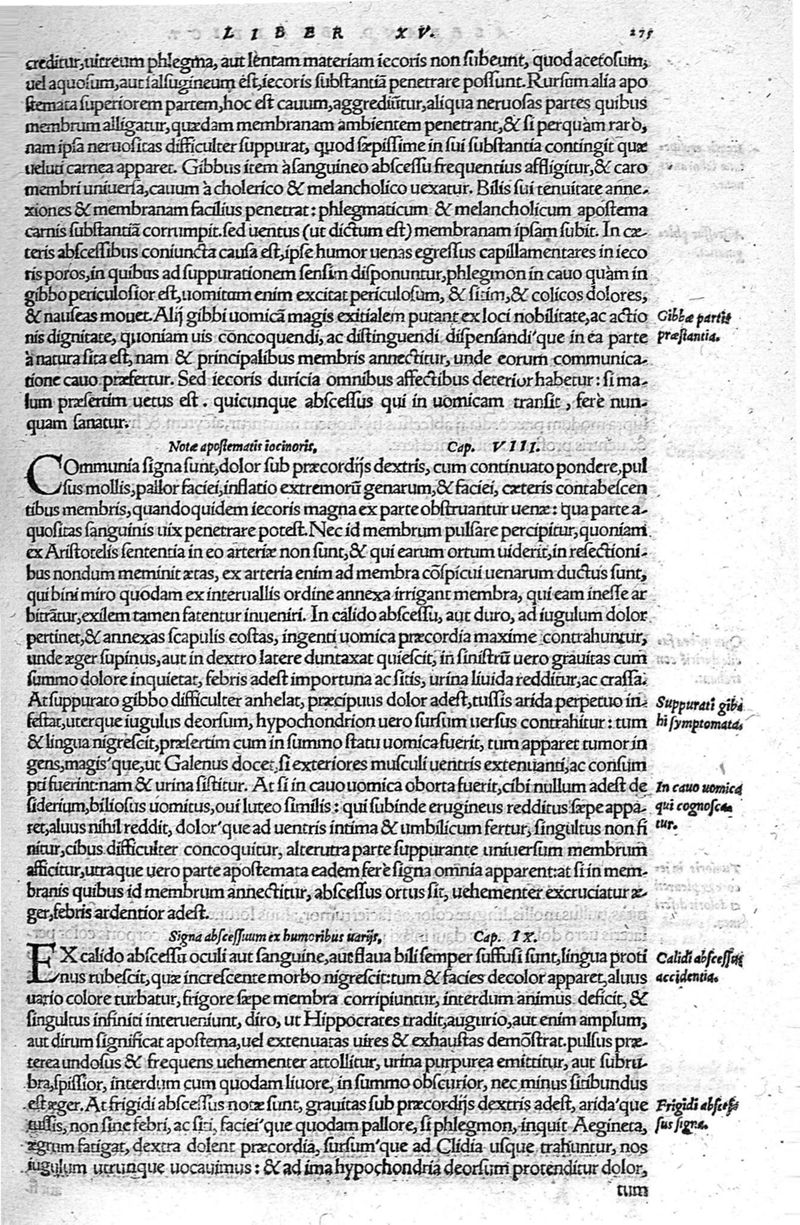 LIBER XV. 275
creditur, uitreum phlegma, aut lentam materiam iecoris non subeunt, quod acetosum,
uel aquosum, aut salsugineum est, iecoris substantiā penetrare possunt. Rursum alia apo
stemata superiorem partem, hoc est cauum, aggrediūtur, aliqua neruosas partes quibus
membrum alligatur, quædam membranam ambientem penetrant, & si perquàm rarò,
nam ipsa neruositas difficulter suppurat, quod sæpissime in sui substantia contingit quæ
ueluti carnea apparet. Gibbus item à sanguineo abscessu frequentius affligitur, & caro
membri uniuersa, cauum à cholerico & melancholico uexatur. Bilis sui tenuitate anne-
xiones & membranam facilius penetrat: phlegmaticum & melancholicum apostema
carnis substantiā corrumpit. sed uentus (ut dictum est) membranam ipsam subit. In cæ-
teris abscessibus coniuncta causa est, ipse humor uenas egressus capillamentares in ieco
ris poros, in quibus ad suppurationem sensim disponuntur, phlegmon in cauo quàm in
gibbo periculosior est, uomitum enim excitat periculosum, & sitim, & colicos dolores,
& nauseas mouet. Alij gibbi uomicā magis exitialem putant ex loci nobilitate, ac actio
nis dignitate, quoniam uis cōncoquendi, ac distinguendi dispensandi'que in ea parte
à natura sita est, nam & principalibus membris annectitur, unde eorum communica-
tione cauo præfertur. Sed iecoris duricia omnibus affectibus deterior habetur: si ma-
lum præsertim uetus est. quicunque abscessus qui in uomicam transit, ferè nun-
quam sanatur.
Gibbæ partis
præstantia.
Notæ apostematis iocinoris, Cap. VIII.
COmmunia signa sunt, dolor sub præcordijs dextris, cum continuato pondere, pul
sus mollis, pallor faciei, inflatio extremorū genarum, & faciei, cæteris contabescen
tibus membris, quandoquidem iecoris magna ex parte obstruantur uenæ: qua parte a-
quositas sanguinis uix penetrare potest. Nec id membrum pulsare percipitur, quoniam
ex Aristotelis sententia in eo arteriæ non sunt, & qui earum ortum uiderit, in resectioni-
bus nondum meminit ætas, ex arteria enim ad membra cōspicui uenarum ductus sunt,
qui bini miro quodam ex interuallis ordine annexa irrigant membra, qui eam inesse ar
bitrātur, exilem tamen fatentur inueniri. In calido abscessu, aut duro, ad iugulum dolor
pertinet, & annexas scapulis costas, ingenti uomica præcordia maxime contrahuntur,
unde æger supinus, aut in dextro latere duntaxat quiescit, in sinistrū uero grauitas cum
summo dolore inquietat, febris adest importuna ac sitis, urina liuida redditur, ac crassa.
At suppurato gibbo difficulter anhelat, præcipuus dolor adest, tussis arida perpetuo in-
festat, uterque iugulus deorsum, hypochondrion uero sursum uersus contrahitur: tum
& lingua nigrescit, præsertim cum in summo statu uomica fuerit, tum apparet tumor in
gens, magis'que, ut Galenus docet, si exteriores musculi uentris extenuanti, ac consum
pti fuerint: nam & urina sistitur. At si in cauo uomica oborta fuerit, cibi nullum adest de
siderium, biliosus uomitus, oui luteo similis: qui subinde erugineus redditus sæpe appa-
ret, aluus nihil reddit, dolor'que ad uentris intima & umbilicum fertur, singultus non fi
nitur, cibus difficulter concoquitur, alterutra parte suppurante uniuersum membrum
afficitur, utraque uero parte apostemata eadem ferè signa omnia apparent: at si in mem-
branis quibus id membrum annectitur, abscessus ortus sit, uehementer excruciatur æ-
ger, febris ardentior adest.
Suppurati gib-
bi symptomata.
In cauo uomica
qui cognosca-
tur.
Signa abscessuum ex humoribus uarijs, Cap. IX.
EX calido abscessu oculi aut sanguine, aut flaua bili semper suffusi sunt, lingua proti
nus rubescit, quæ increscente morbo nigrescit: tum & facies decolor apparet, aluus
uario colore turbatur, frigore sæpe membra corripiuntur, interdum animus deficit, &
singultus infiniti interueniunt, diro, ut Hippocrates tradit, augurio, aut enim amplum,
aut dirum significat apostema, uel extenuatas uires & exhaustas demōstrat. pulsus præ-
terea undosus & frequens uehementer attollitur, urina purpurea emittitur, aut subru-
bra, spissior, interdum cum quodam liuore, in summo obscurior, nec minus sitibundus
est æger. At frigidi abscessus notæ sunt, grauitas sub præcordijs dextris adest, arida'que
tussis, non sine febri, ac siti, faciei'que quodam pallore, si phlegmon, inquit Aegineta,
ægrum fatigat, dextra dolent præcordia, sursum'que ad Clidia usque trahuntur, nos
iugulum utrunque uocauimus: & ad ima hypochondria deorsum protenditur dolor,
tum
Calidi abscessus
accidentia.
Frigidi absces-
sus signa.